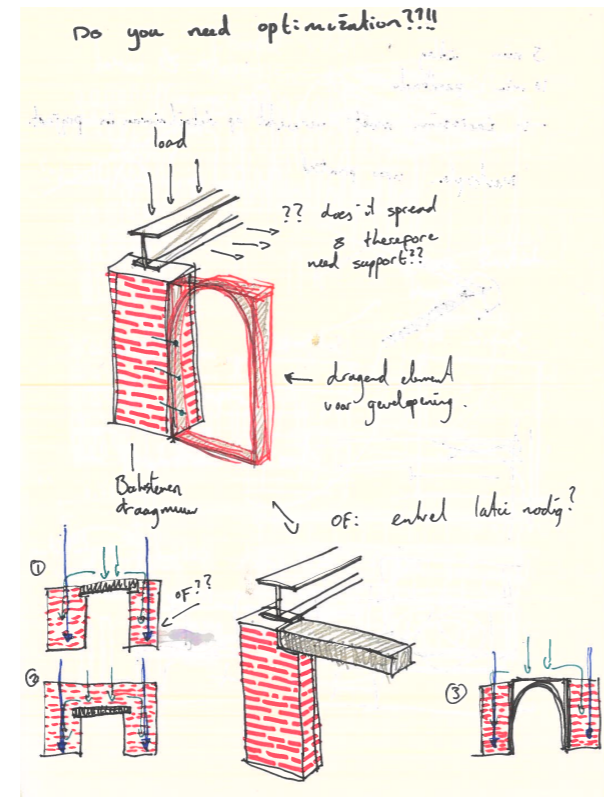 Do you need optimization??!!
load
?? does it spread
& therefore
need support??
dragend element
voor gevelopening.
Bakstenen
draagmuur
OF: enkel latei nodig?
①
OF??
②
③